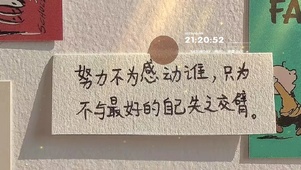 21:20:52
努力不为感动谁，只为
不与最好的自己失之交臂。
FA